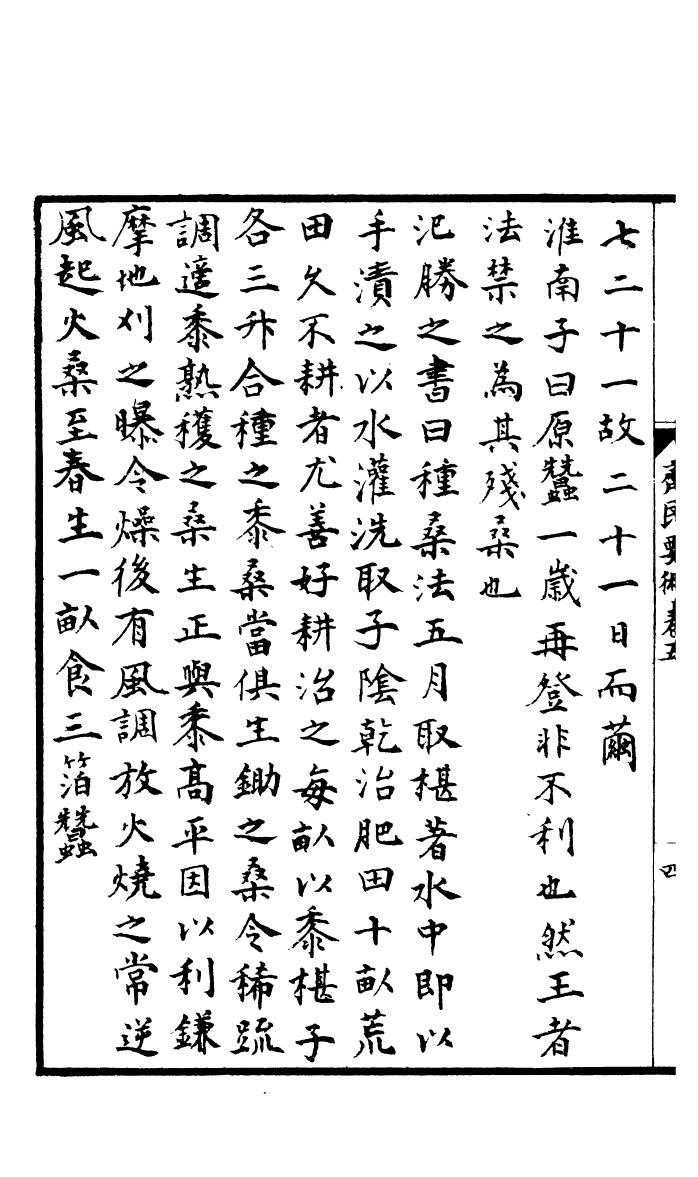 齊民要術卷五
四
七二十一故二十一日而繭
淮南子曰原蠶一歲再登非不利也然王者
法禁之為其殘桑也
氾勝之書曰種桑法五月取椹著水中即以
手漬之以水灌洗取子陰乾治肥田十畝荒
田久不耕者尤善好耕治之每畝以黍椹子
各三升合種之黍桑當俱生鋤之桑令稀疏
調適黍熟穫之桑生正與黍高平因以利鎌
摩地刈之曝令燥後有風調放火燒之常逆
風起火桑至春生一畝食三箔蠶